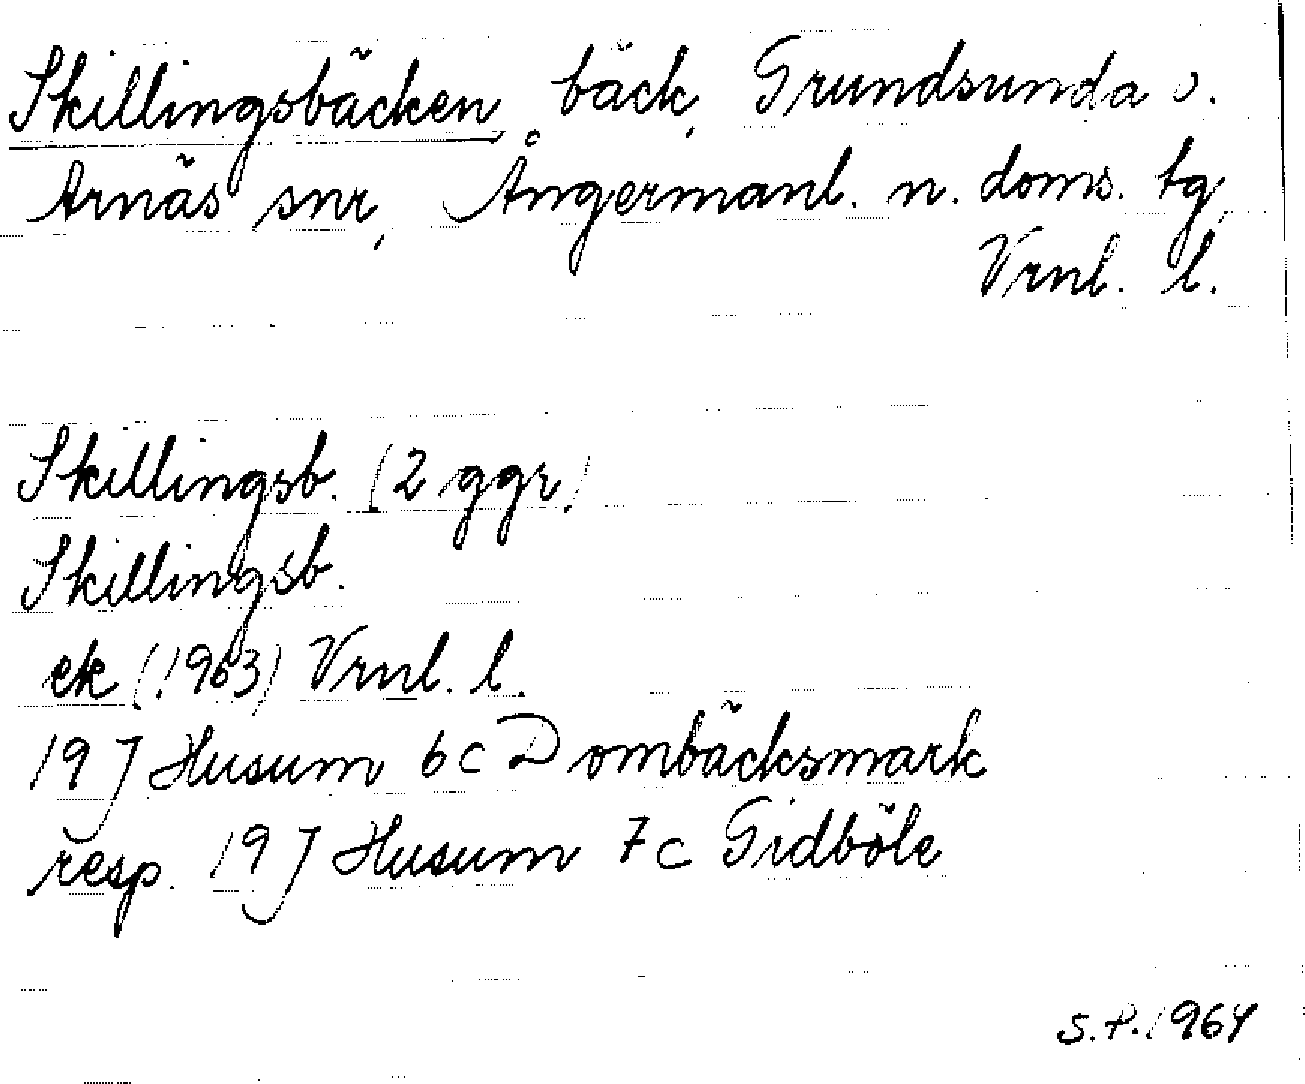 Skillingsbäcken, bäck, Grundsunda o.
Arnäs snr, Ångermanl. n. doms. tg,
Vrnl. l.
Skillingsb. (2 ggr)
Skillingsb.
ek (1963) Vrnl. l.
19 J Husum 6 c Dombäcksmark
resp. 19 J Husum 7 c Gidböle
S.P. 1964